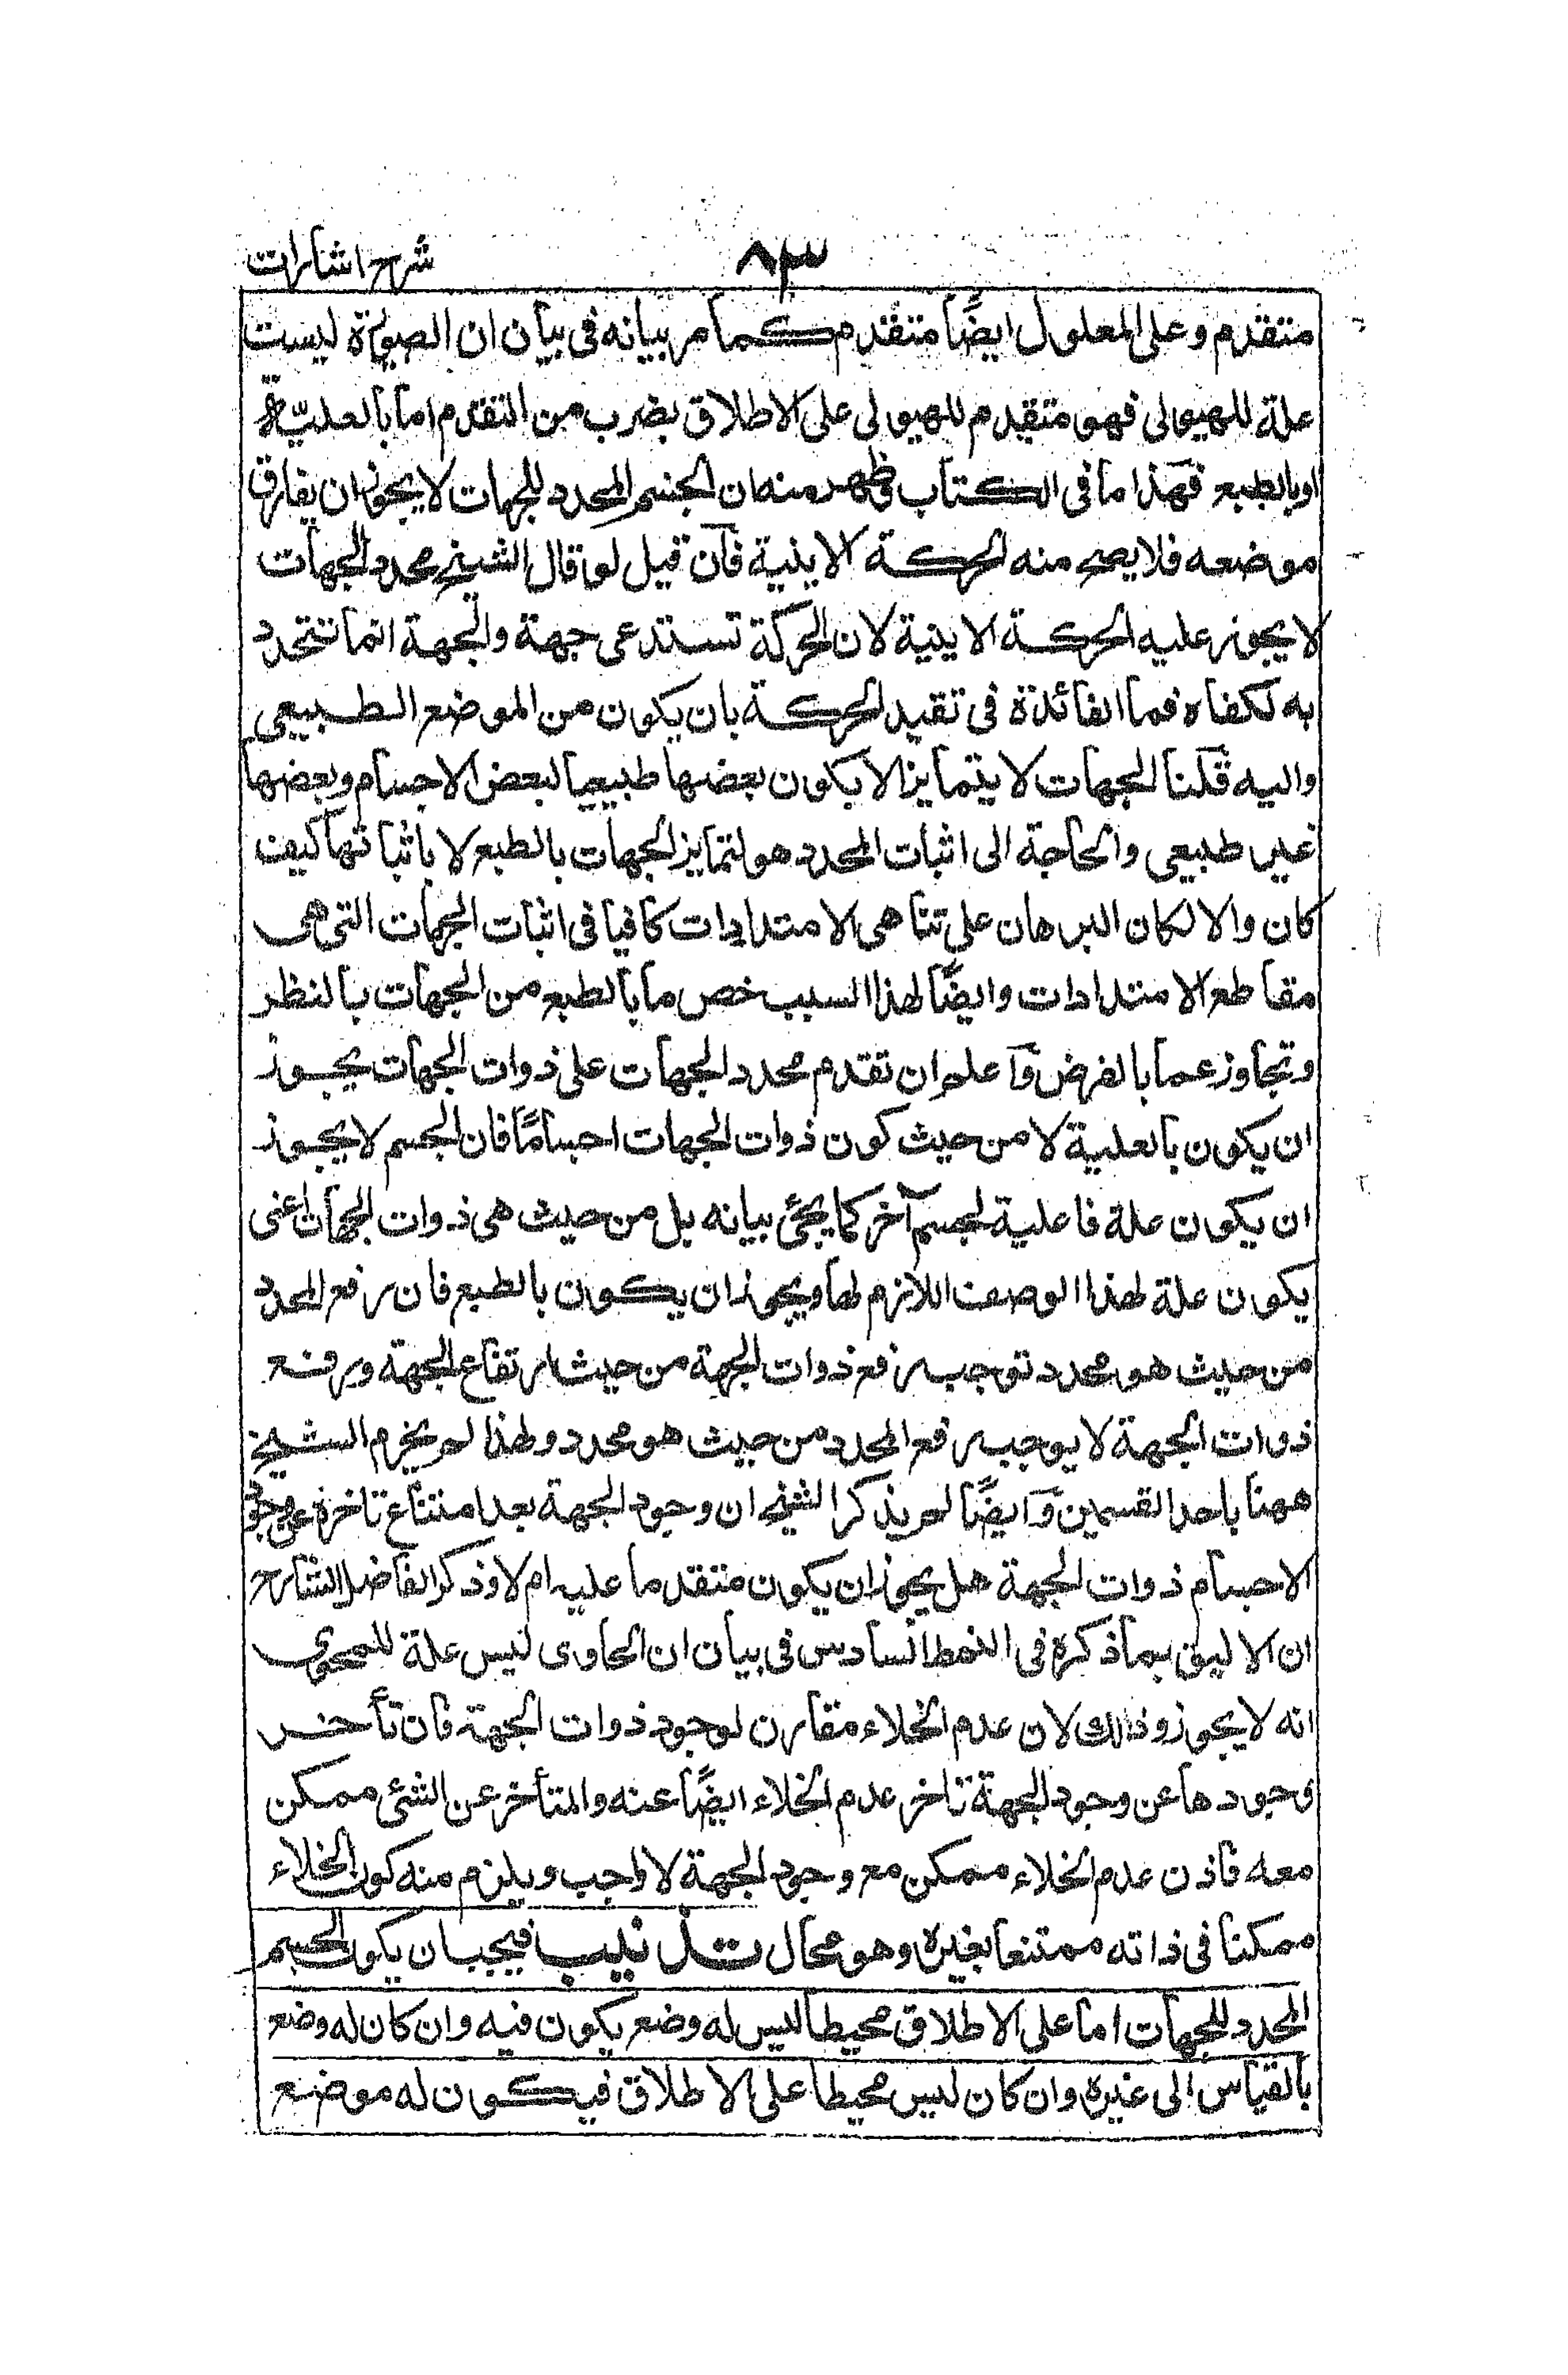 ٨٣
شرح اشارات
متقدم وعلى المعلول ايضًا متقدم كما مر بيانه فى بيان ان الصورة ليست
علة للهيولى فهو متقدم للهيولى على الاطلاق بضرب من التقدم اما بالعليّة
او بالطبع فهذا ما فى الكتاب فظهر منه ان الجسم المحدد للجهات لا يجوز ان يفارق
موضعه فلا يصح منه الحركة الاينية فان قيل لو قال الشيخ محدد الجهات
لا يجوز عليه الحركة الاينية لان الحركة تستدعى جهة والجهة انما تتحدد
به لكفاه فما الفائدة فى تقيد الحركة بان يكون من الموضع الطبيعى
واليه قلنا الجهات لا يتمايز الا بكون بعضها طبيعيا لبعض الاجسام وبعضها
غير طبيعى والحاجة الى اثبات المحدد هو لتمايز الجهات بالطبع لا باثباتها كيف
كان والا لكان البرهان على تناهى الامتدادات كافيا فى اثبات الجهات التى هى
مقاطع الامتدادات وايضًا لهذا السبب خص ما بالطبع من الجهات بالنظر
وتجاوز عما بالفرض واعلم ان تقدم محدد الجهات على ذوات الجهات يجوز
ان يكون بالعلية لا من حيث كون ذوات الجهات اجسامًا فان الجسم لا يجوز
ان يكون علة فاعلية لجسم آخر كما يجئ بيانه بل من حيث هى ذوات الجهات اعنى
يكون علة لهذا الوصف اللازم لها ويجوز ان يكون بالطبع فان رفع المحدد
من حيث هو محدد توجب رفع ذوات الجهة من حيث ارتفاع الجهة ورفع
ذوات الجهة لا يوجب رفع المحدد من حيث هو محدد ولهذا لم يجزم الشيخ
ههنا باحد القسمين وايضًا لم يذكر الشيخ ان وجود الجهة بعد امتناع تاخره عن وجود
الاجسام ذوات الجهة هل يجوز ان يكون متقدما عليه ام لا وذكر الفاضل الشارح
ان الاليق بما ذكره فى النمط السادس فى بيان ان الحاوى ليس علة للمحوى
انه لا يجوز وذلك لان عدم الخلاء مقارن لوجود ذوات الجهة فان تأخر
وجودها عن وجود الجهة تاخر عدم الخلاء ايضًا عنه والمتأخر عن الشئ ممكن
معه فاذن عدم الخلاء ممكن مع وجود الجهة لا واجب ويلزم منه كون الخلاء
ممكنا فى ذاته ممتنعا بغيره وهو محال تذنيب فيجب ان يكون الجسم
المحدد للجهات اما على الاطلاق محيطا ليس له وضع يكون فيه وان كان له وضع
بالقياس الى غيره وان كان ليس محيطا على الاطلاق فيكون له موضع